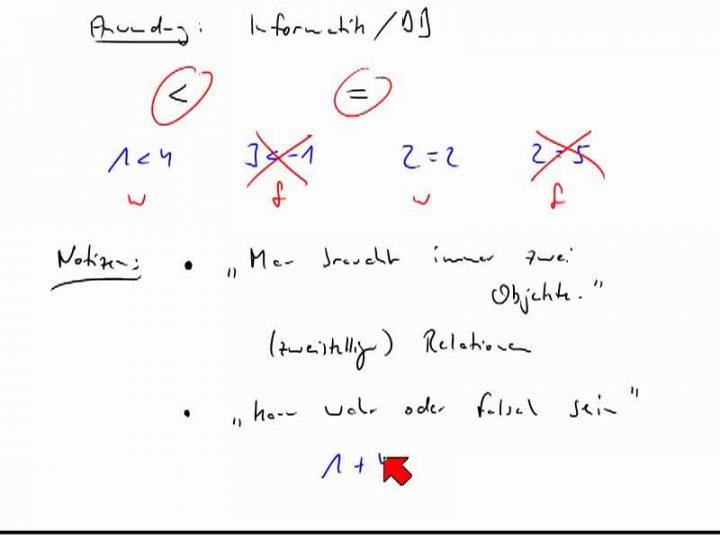 Anwendung: Informatik / DB
< =
1 < 4 3 < -1 2 = 2 2 = 5
w f w f
Notizen: • „Man braucht immer zwei
Objekte."
(zweistellige) Relationen
• „kann wahr oder falsch sein"
1 + 4